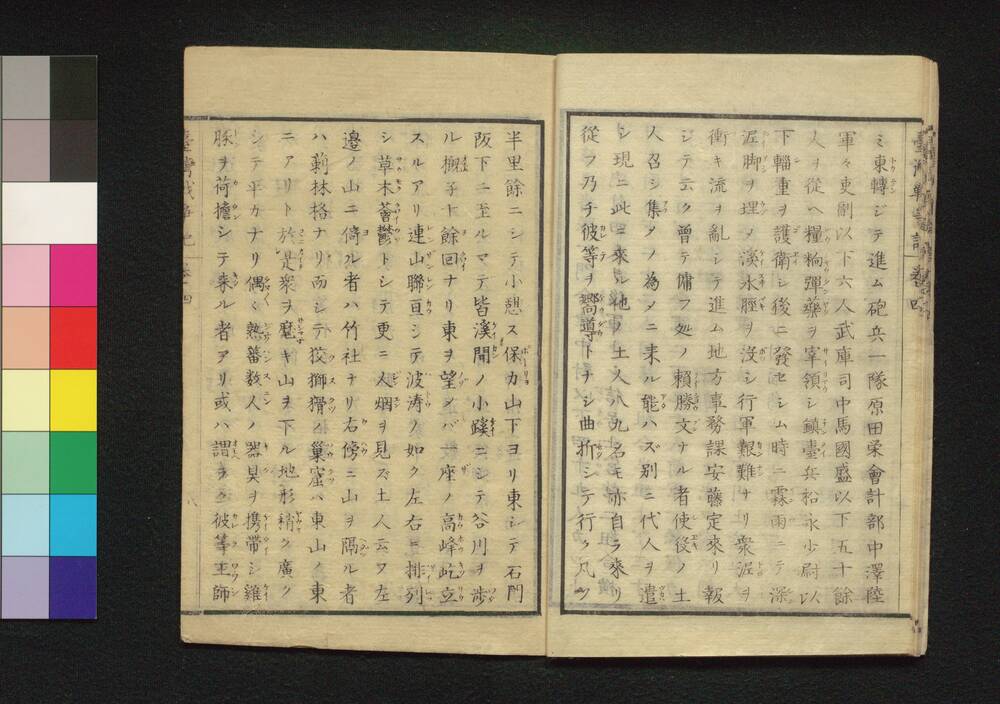 ミ東轉ジテ進ム砲兵一隊原田栄會計部中澤陸
軍々吏副以下六人武庫司中馬國盛以下五十餘
人ヲ從ヘ糧餉彈藥ヲ宰領シ鎮臺兵松永少尉以
下輜重ヲ護衛シ後ニ發セシム時ニ霖雨ニテ深
泥脚ヲ埋メ溪水脛ヲ没シ行軍艱難ナリ衆泥ヲ
衝キ流ヲ亂シテ進ム地方事務課安藤定來リ報
ジテ云ク曾テ傭フ処ノ賴勝文ナル者使役ノ土
人召シ集メノ為メニ来ル能ハズ別ニ代人ヲ遣
シ現ニ此ニ來ル他ノ土人八九名モ亦自ラ來リ
從フ乃チ彼等ヲ嚮導トナシ曲折シテ行ク凡ソ
半里餘ニシテ小憩ス保カ山下ヨリ東シテ石門
阪下ニ至ルマデ皆溪間ノ小蹊ニシテ谷川ヲ渉
ル概子十餘回ナリ東ヲ望メバ一座ノ高峰屹立
スルアリ連山聯亘シテ波涛ノ如ク左右ニ排列
シ草木薈鬱トシテ更ニ人烟ヲ見ズ土人云フ左
邉ノ山ニ倚ル者ハ竹社ナリ右傍ニ山ヲ隔ル者
ハ莿林格ナリ而シテ狡獅猾ノ巢窟ハ東山ノ東
ニアリト於是衆ヲ麾キ山ヲ下ル地形稍ク廣ク
シテ平カナリ偶々熟蕃数人ノ器具ヲ携帯シ雞
豚ヲ荷擔シテ来ル者アリ或ハ謂ラク彼等王師